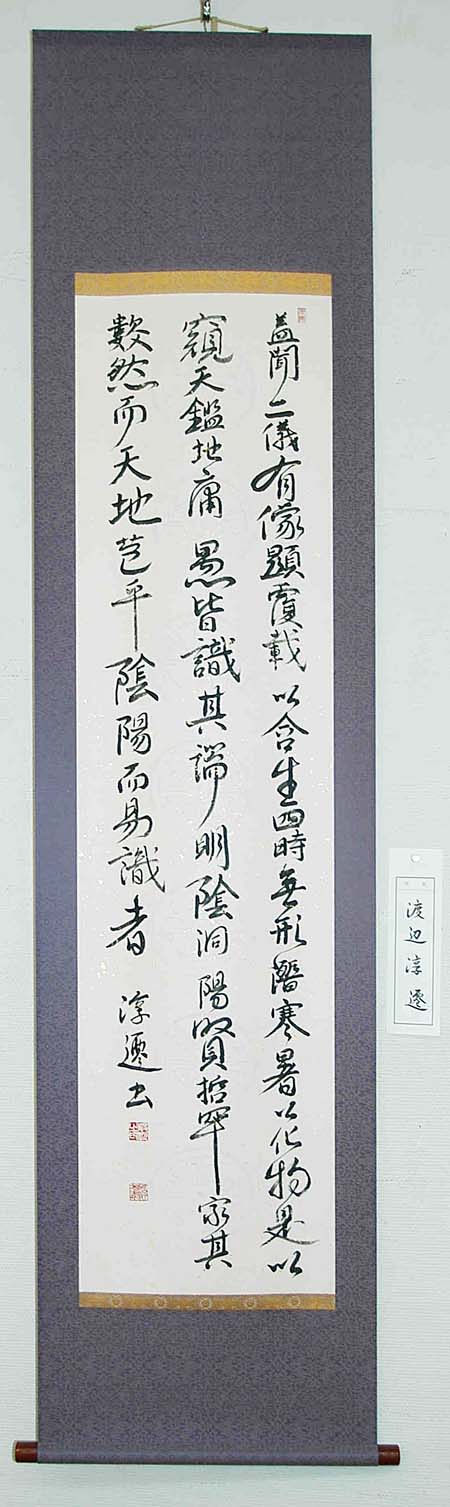 盖聞二儀有像顯覆載以含生四時無形潛寒暑以化物是以
窺天鑑地庸愚皆識其端明陰洞陽賢哲罕窮其
數然而天地苞乎陰陽而易識者
淳遷書
渡辺淳遷